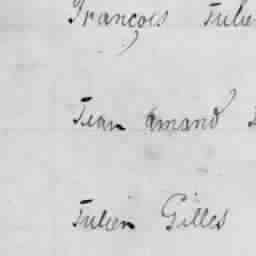 François Julie
Jean amand
Julien Gilles